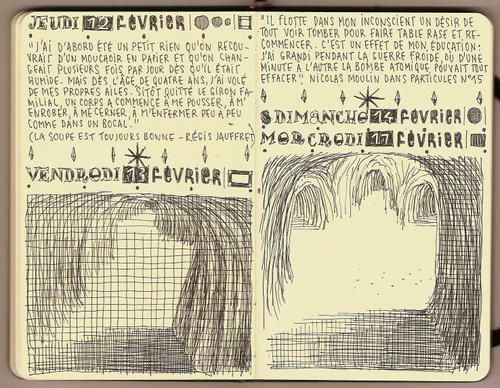 JEUDI 12 FÉVRIER
"J'AI D'ABORD ÉTÉ UN PETIT RIEN QU'ON RECOU-
VRAIT D'UN MOUCHOIR EN PAPIER ET QU'ON CHAN-
GEAIT PLUSIEURS FOIS PAR JOUR DÈS QU'IL ÉTAIT
HUMIDE. MAIS DÈS L'ÂGE DE QUATRE ANS, J'AI VOLÉ
DE MES PROPRES AILES. SITÔT QUITTÉ LE GIRON FA-
MILIAL, UN CORPS A COMMENCÉ À ME POUSSER, À M'
ENROBER, À ME CERNER, À M'ENFERMER PEU À PEU
COMME DANS UN BOCAL."
(LA SOUPE EST TOUJOURS BONNE - RÉGIS JAUFFRET)
VENDRODI 13 FÉVRIER
"IL FLOTTE DANS MON INCONSCIENT UN DÉSIR DE
TOUT VOIR TOMBER POUR FAIRE TABLE RASE ET RE-
COMMENCER. C'EST UN EFFET DE MON ÉDUCATION:
J'AI GRANDI PENDANT LA GUERRE FROIDE, OÙ D'UNE
MINUTE À L'AUTRE LA BOMBE ATOMIQUE POUVAIT TOUT
EFFACER" NICOLAS MOULIN DANS PARTICULES N°15
DIMANCHO 14 FÉVRIER
MORCRODI 17 FÉVRIER